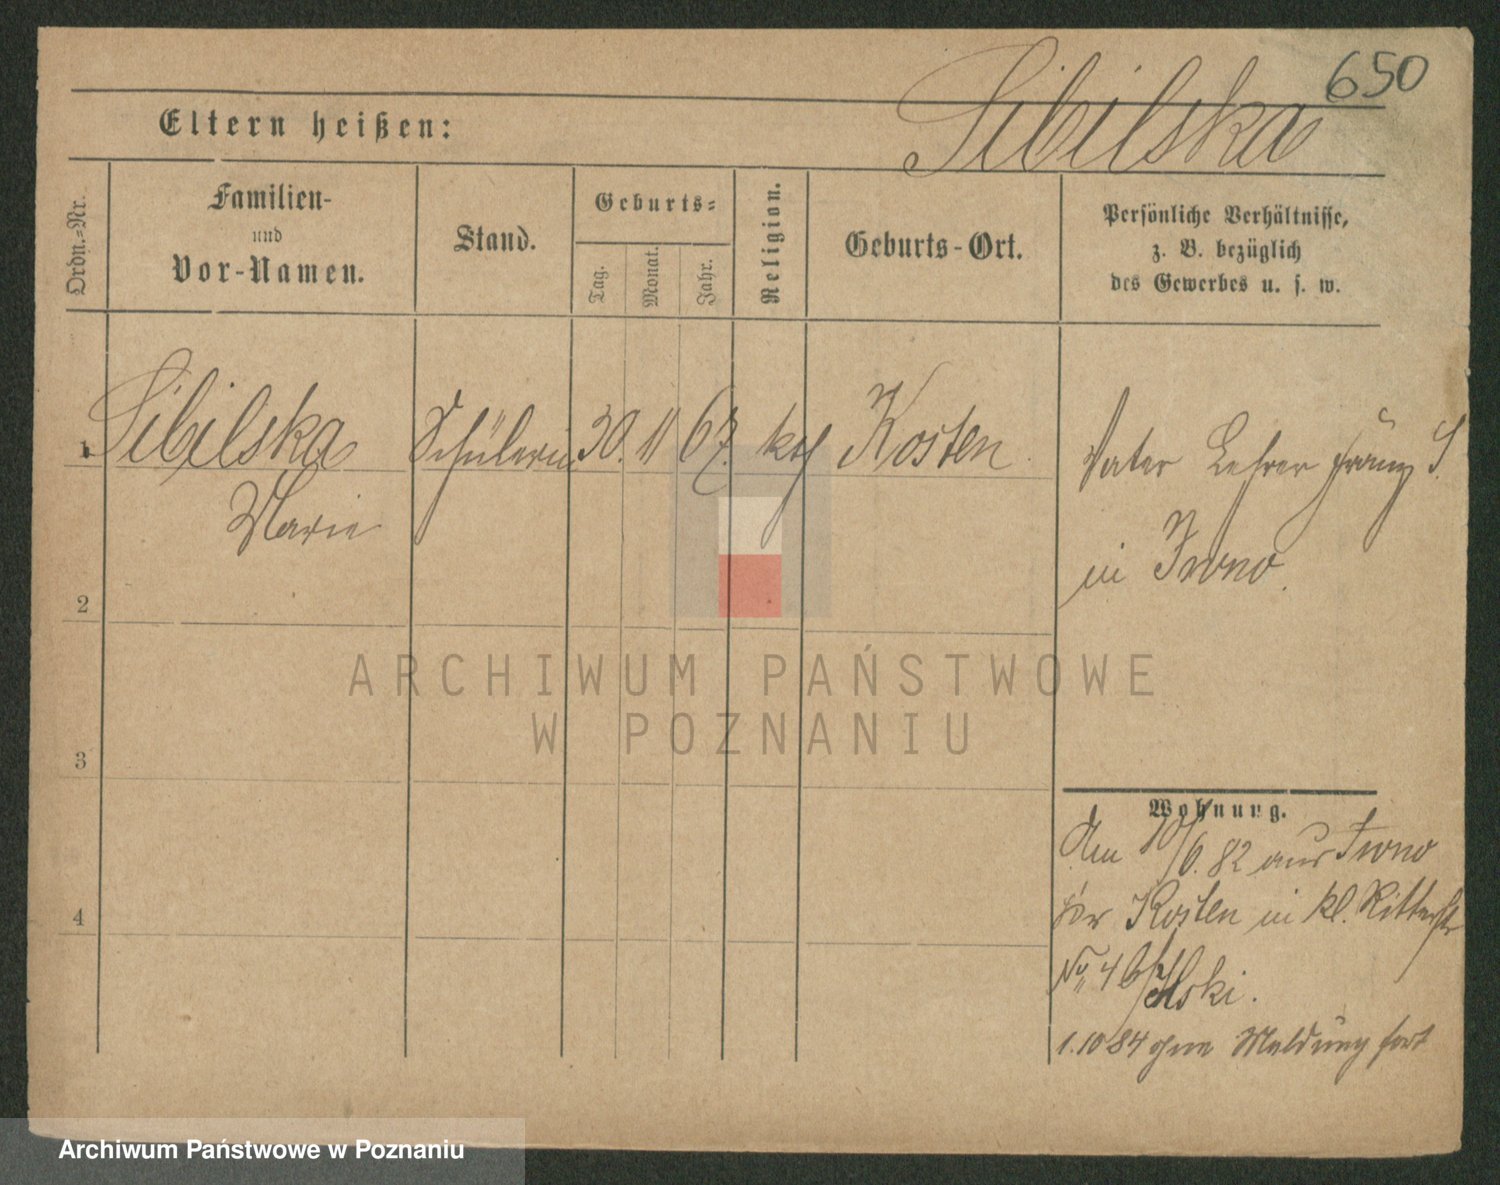 650
Sibilska
Eltern heißen:
Ordn.-Nr.
Familien-
und
Vor-Namen.
Stand.
Geburts-
Tag.
Monat.
Jahr.
Religion.
Geburts-Ort.
Persönliche Verhältnisse,
z. B. bezüglich
des Gewerbes u. s. w.
1 Sibilska Schülerin 30. 11 67. kth Kosten
Marie
Vater Lehrer Franz S.
in
2
3
4
Wohnung.
Den 10/6. 82 aus
Kosten in kl. Ritterstr
No 4 b/
1.10 84 ohne Meldung fort
ARCHIWUM PAŃSTWOWE
W POZNANIU
Archiwum Państwowe w Poznaniu